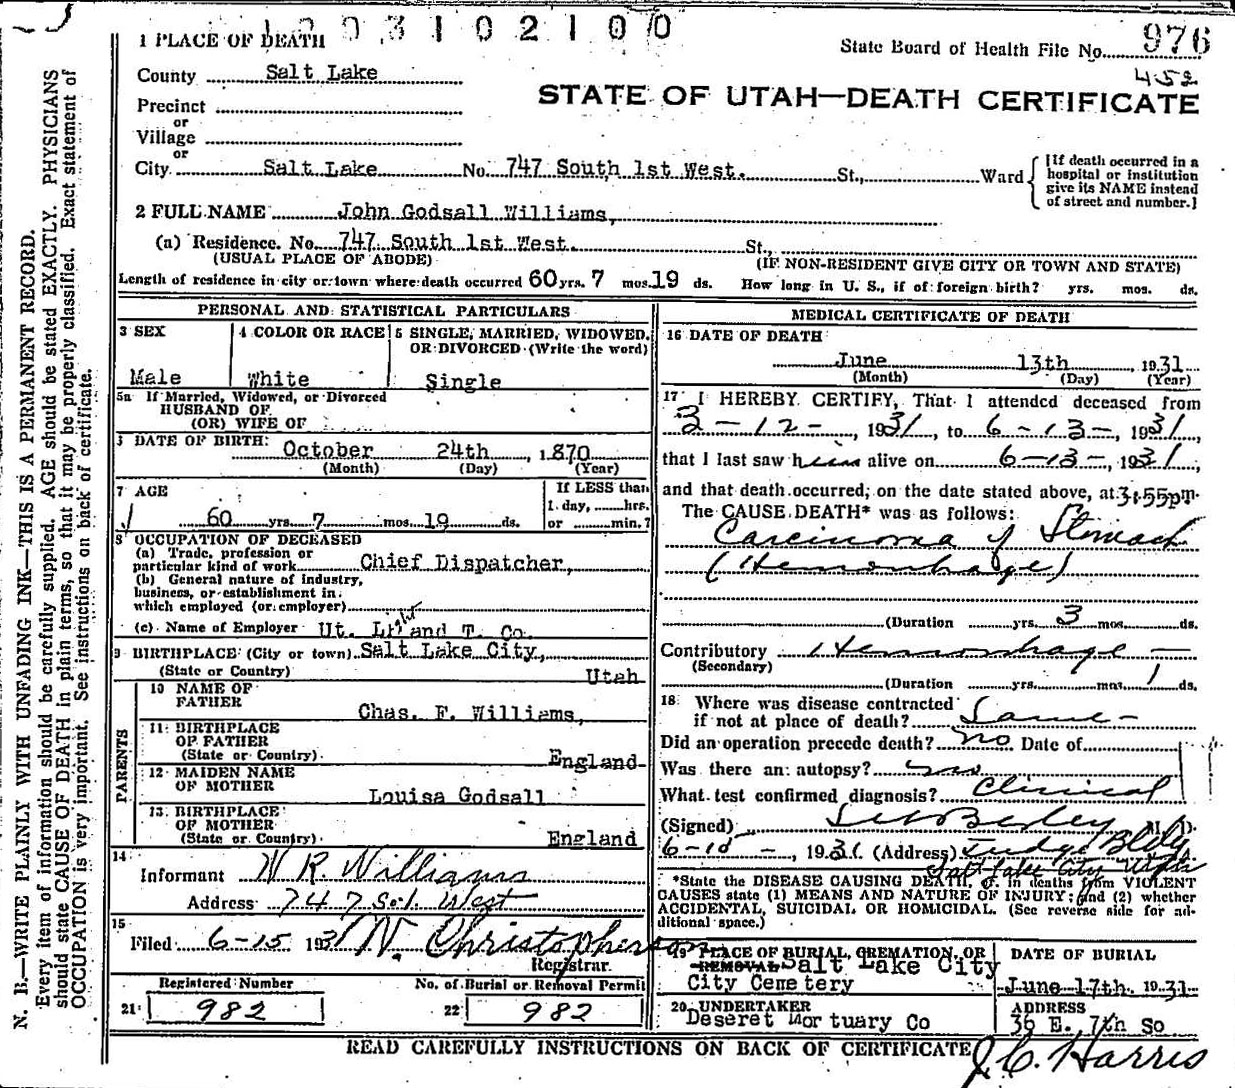 1 PLACE OF DEATH
State Board of Health File No. 976
452
County Salt Lake
STATE OF UTAH—DEATH CERTIFICATE
Precinct
or
Village
or
City Salt Lake No. 747 South 1st West. St., Ward
[If death occurred in a
hospital or institution
give its NAME instead
of street and number.]
2 FULL NAME John Godsall Williams,
(a) Residence. No. 747 South 1st West. St.,
(USUAL PLACE OF ABODE) (IF NON-RESIDENT GIVE CITY OR TOWN AND STATE)
Length of residence in city or town where death occurred 60 yrs. 7 mos. 19 ds. How long in U. S., if of foreign birth? yrs. mos. ds.
PERSONAL AND STATISTICAL PARTICULARS
3 SEX
Male
4 COLOR OR RACE
White
5 SINGLE, MARRIED, WIDOWED,
OR DIVORCED (Write the word)
Single
5a If Married, Widowed, or Divorced
HUSBAND OF
(OR) WIFE OF
DATE OF BIRTH: October 24th, 1870
(Month) (Day) (Year)
7 AGE
60 yrs. 7 mos. 19 ds.
If LESS than
1 day, hrs.
or min.?
8 OCCUPATION OF DECEASED
(a) Trade, profession or
particular kind of work Chief Dispatcher,
(b) General nature of industry,
business, or establishment in
which employed (or employer)
(c) Name of Employer Ut. Light and T. Co.
9 BIRTHPLACE (City or town) Salt Lake City,
(State or Country) Utah
PARENTS
10 NAME OF
FATHER Chas. F. Williams,
11 BIRTHPLACE
OF FATHER
(State or Country) England
12 MAIDEN NAME
OF MOTHER Louisa Godsall
13 BIRTHPLACE
OF MOTHER
(State or Country) England
14
Informant W R. Williams
Address 747 So 1 West
15
Filed 6-15 1931 W. Christopherson
Registrar.
Registered Number
21 982
No. of Burial or Removal Permit
22 982
MEDICAL CERTIFICATE OF DEATH
16 DATE OF DEATH
June 13th, 1931
(Month) (Day) (Year)
17 I HEREBY CERTIFY, That I attended deceased from
3-12-, 1931, to 6-13-, 1931,
that I last saw him alive on 6-13-, 1931,
and that death occurred, on the date stated above, at 3:55 p.m.
The CAUSE DEATH* was as follows:
Carcinoma of Stomach
(Hemorrhage)
(Duration yrs. 3 mos. ds.
Contributory Hemorrhage —
(Secondary)
(Duration yrs. mos. 1 ds.
18 Where was disease contracted
if not at place of death? Same -
Did an operation precede death? no Date of
Was there an autopsy? no
What test confirmed diagnosis? Clinical
(Signed) M. D.
, 1931. (Address) Judge Bldg
Salt Lake City Utah
*State the DISEASE CAUSING DEATH, or in deaths from VIOLENT
CAUSES state (1) MEANS AND NATURE OF INJURY; and (2) whether
ACCIDENTAL, SUICIDAL OR HOMICIDAL. (See reverse side for ad-
ditional space.)
19 PLACE OF BURIAL, CREMATION, OR
REMOVAL Salt Lake City
City Cemetery
DATE OF BURIAL
June 17th. 1931
20 UNDERTAKER
Deseret Mortuary Co
ADDRESS
36 E. 7th So
READ CAREFULLY INSTRUCTIONS ON BACK OF CERTIFICATE
J. C. Harris
N. B.—WRITE PLAINLY WITH UNFADING INK—THIS IS A PERMANENT RECORD.
Every item of information should be carefully supplied. AGE should be stated EXACTLY. PHYSICIANS
should state CAUSE OF DEATH in plain terms, so that it may be properly classified. Exact statement of
OCCUPATION is very important. See instructions on back of certificate.